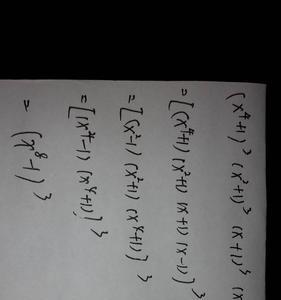 (x⁴+1)³ (x²+1)³ (x+1)³ (x
= [(x⁴+1) (x²+1) (x+1) (x-1)]³
= [(x²-1) (x²+1) (x⁴+1)]³
= [(x⁴-1) (x⁴+1)]³
= (x⁸-1)³